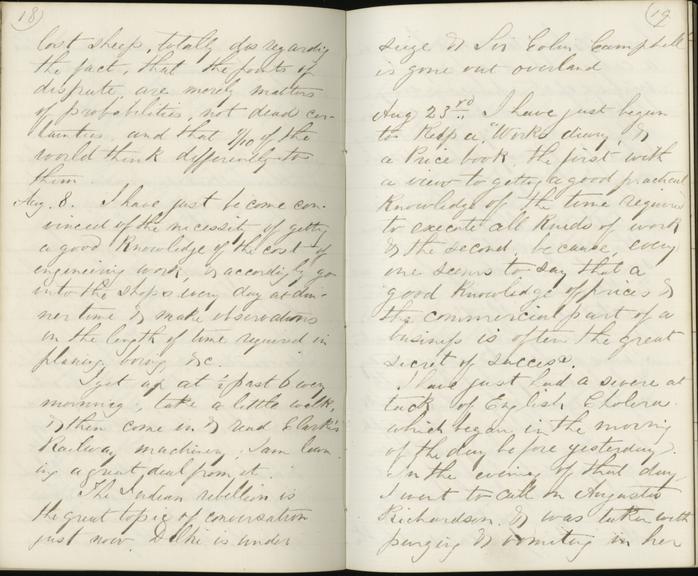 18
lost sheep, totally disregarding
the fact, that the points of
dispute, are merely matters
of probabilities, not dead cer-
tainties, and that 9/10 of the
world think differently to
them.
Aug. 8. I have just become con-
vinced of the necessity of getting
a good knowledge of the cost of
engineering work, & accordingly go
into the shops every day at din-
ner time & make observations
on the length of time required in
planing, boring, &c.
I get up at ½ past 6 every
morning, take a little walk,
& then come in & read Clark's
Railway machinery, I am learn-
ing a great deal from it.
The Indian rebellion is
the great topic of conversation
just now. Delhi is under
19
siege & Sir Colin Campbell
is gone out overland
Aug 23rd I have just begun
to keep a "Works diary", &
a Price book, the first with
a view to getting a good practical
knowledge of the time required
to execute all kinds of work
& the second, because, every
one seems to say that a
good knowledge of prices &
the commercial part of a
business is often the great
secret of success.
I have just had a severe at
tack of English Cholera
which began in the morning
of the day before yesterday.
In the evening of that day,
I went to call on Augusta
Richardson, & was taken with
purging & vomiting in her